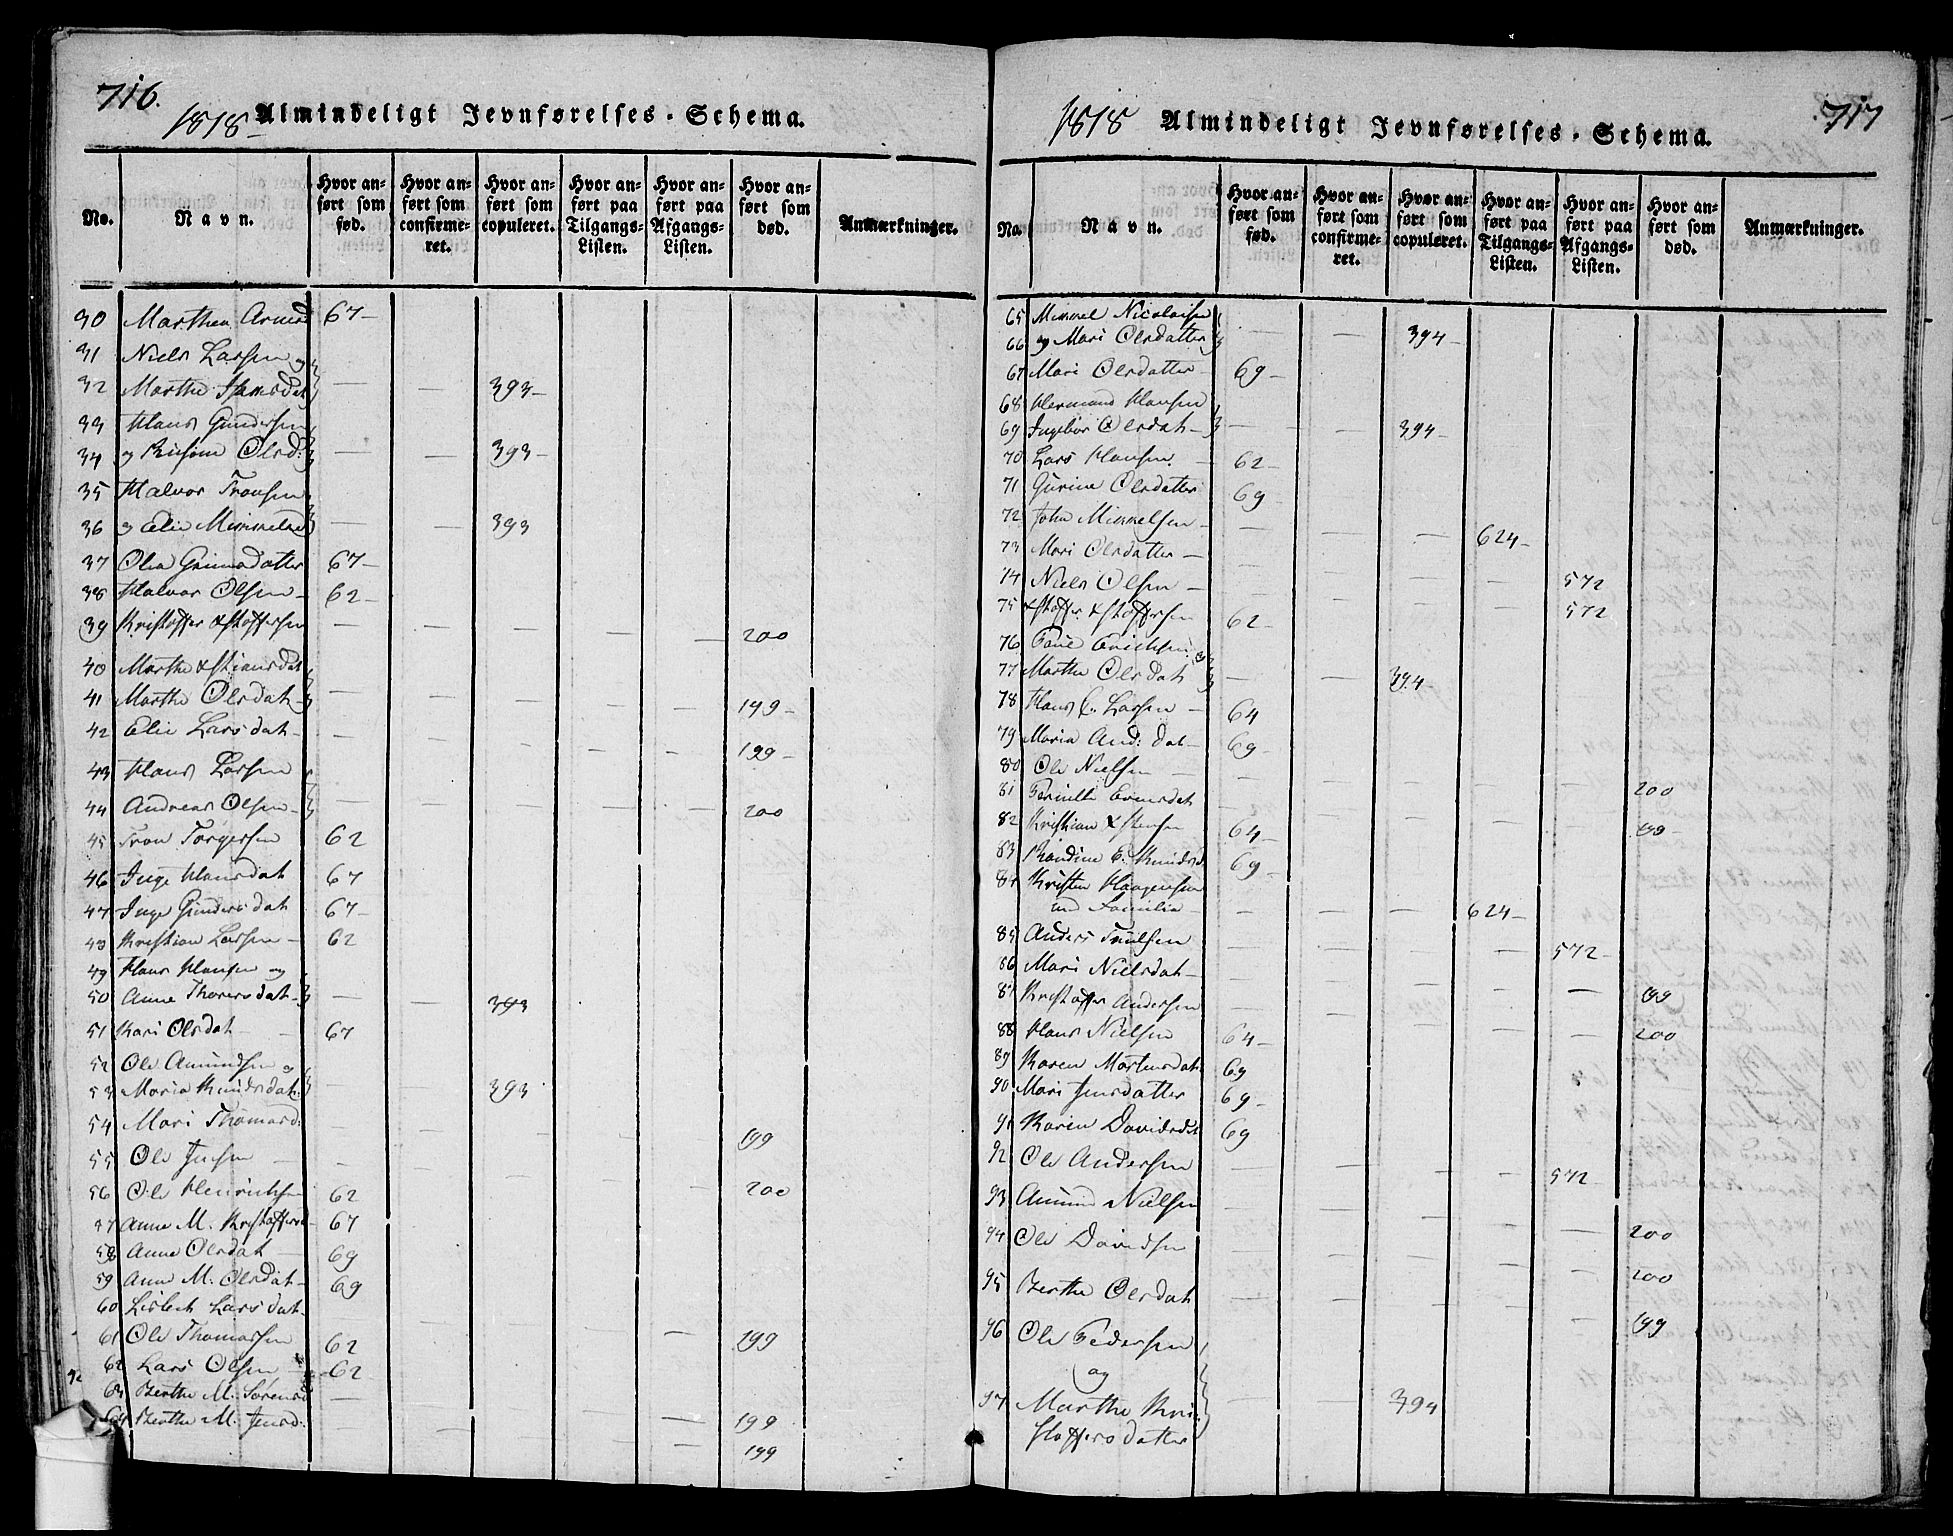 716.
1818 Almindeligt Jevnførelses-Schema.
No. Navn. Hvor anført som fød. Hvor anført som confirmeret. Hvor anført som copuleret. Hvor anført paa Tilgangs-Listen. Hvor anført paa Afgangs-Listen. Hvor anført som død. Anmærkninger.
30 Marthea Arnesd 67-
31 Niels Larsen og
32 Marthe Hansdat — — 393-
33 Hans Gundersen
34 og Olsd: — — 393-
35 Halvor Tronsen
36 og Elie Mimmelsd — — 393
37 Olea Gunnersdatter 67-
38 Halvor Olsen- 62-
39 Kristoffer Xstoffersen — — — — — 200
40 Marthe Xstiansdat
41 Marthe Olsdat- — — — — — 199-
42 Elie Larsdat- — — — — — 199-
43 Hans Larsen
44 Andreas Olsen- — — — — — 200
45 Tron Torgersen 62
46 Inge Hansdat 67
47 Inge Gundersdat 67-
48 Kristian Larsen- 62
49 Hans Hansen og
50 Anne Thorersdat- — — 393
51 Kari Olsdat- 67
52 Ole Amundsen og
53 Maria Knudsdat: — — 393
54 Mari Thomasd: — — — — 199
55 Ole Jensen — — — — — 200
56 Ole Henrichsen 62
57 Anne M. Kristoffersd- 67
58 Anne Olsdat — 69
59 Anne M. Olsdat- 69
60 Lisbeth Larsdat- — — — — 199
61 Ole Thomassen 62
62 Lars Olsen 62
63 Berthe M. Sørensd — — — — — 199
64 Berthe M. Jensd: — — — — 199
717
1818 Almindeligt Jevnførelses-Schema.
No. Navn. Hvor anført som fød. Hvor anført som confirmeret. Hvor anført som copuleret. Hvor anført paa Tilgangs-Listen. Hvor anført paa Afgangs-Listen. Hvor anført som død. Anmærkninger.
65 Mimmel Nicolaisen
66 og Mari Olsdatter — — 394-
67 Mari Olsdatter- 69-
68 Hermand Hansen
69 Ingebor Olsdat- — — 394-
70 Lars Hansen. — 62-
71 Gurine Olsdatter 69-
72 John Mimmelsen- — — — 624-
73 Mari Olsdatter — — — — — 572
74 Niels Olsen — — — — — 572
75 Xstoffer Xstoffersen 62-
76 Erichsen og
77 Marthe Olsdat — — 394-
78 Hans C. Larsen — 64
79 Maria And: dat- 69-
80 Ole Nielsen — — — — — — 200
81 Pernille Evensdat — — — — — 199-
82 Kristian Xstensen 64-
83 Randine E. Knudsd 69-
84 Kristen Haagensen
med Familie- — — — 624-
85 Anders Trulsen — — — — 572-
86 Mari Nielsdat- — — — — — 199
87 Kristoffer Andersen — — — — — 200
88 Hans Nielsen 64-
89 Karen Mortensdat. 69
90 Mari Jensdatter 69-
91 Karen Davidsdat 69
92 Ole Andersen — — — — 572-
93 Amund Nielsen — — — — — 200
94 Ole Davidsen — — — — — 200
95 Berthe Olsdat — — — — — 199
96 Ole Pedersen
og
97 Marthe Kri-
stoffersdatter — — 394